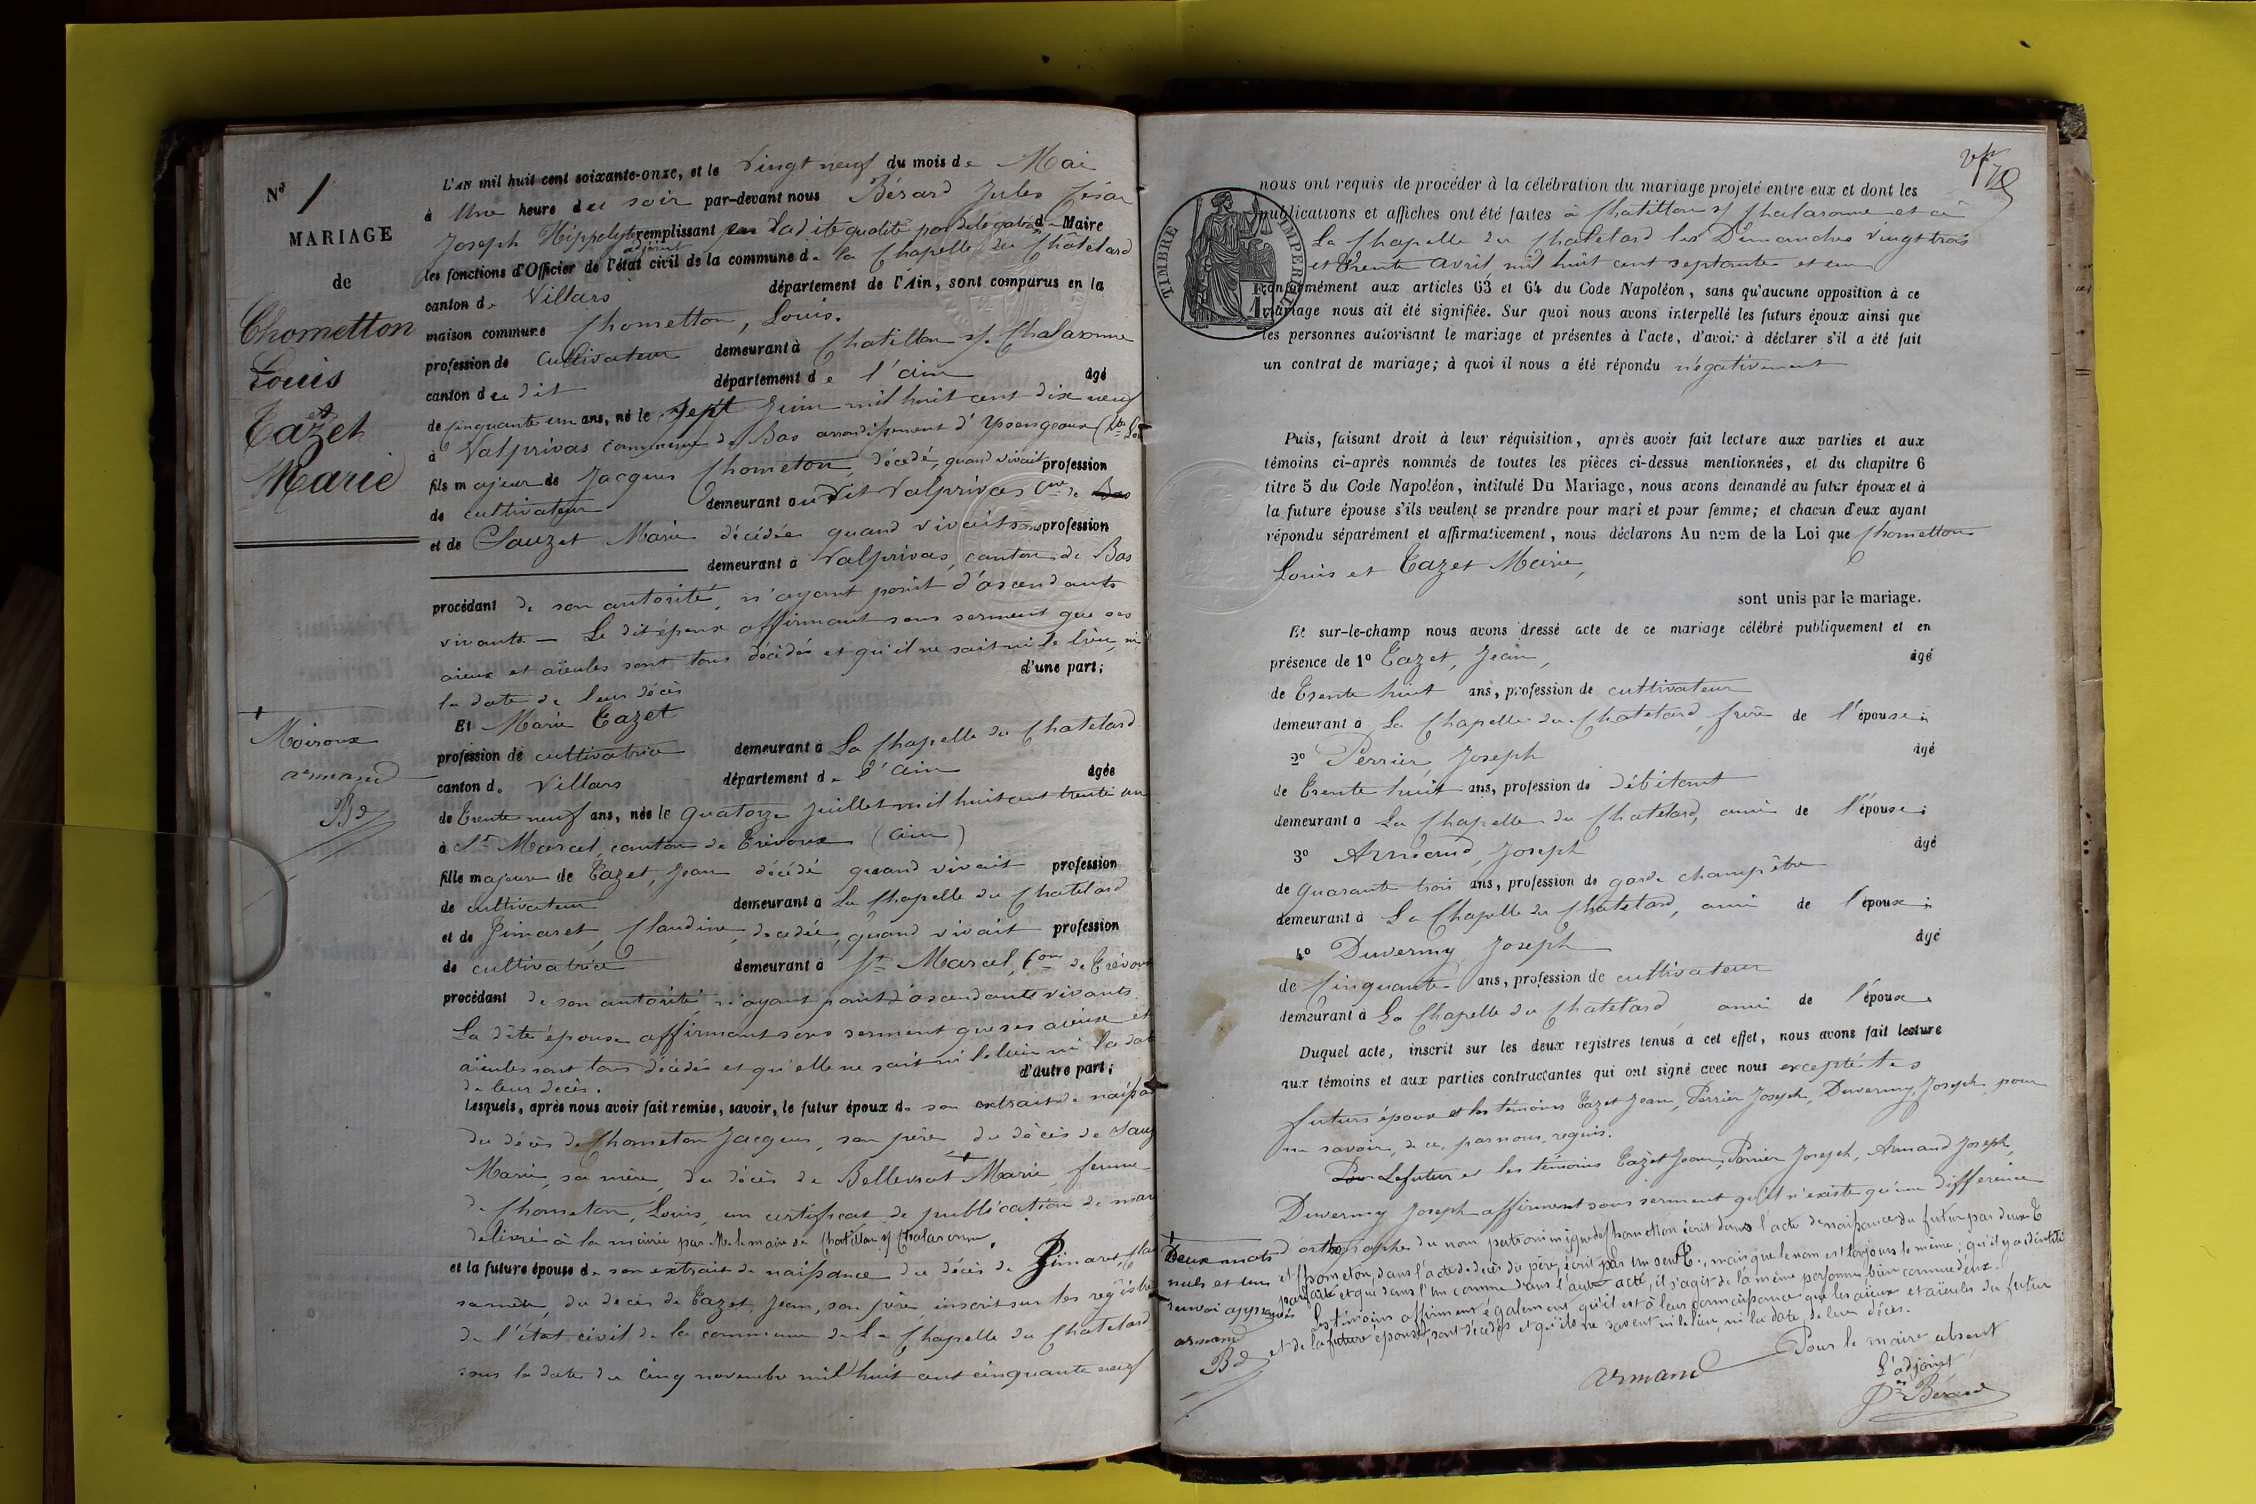 N° 1
MARIAGE
de
Chometton
Louis
et
Tazet
Marie
L'AN mil huit cent soixante-onze, et le Vingt neuf du mois de Mai
à Une heure du soir par-devant nous Bérard Jules César
Joseph Hippolyte remplissant en ladite qualité par délégation de Maire
adjoint
les fonctions d'Officier de l'état civil de la commune de la Chapelle du Châtelard
canton de Villars département de l'Ain, sont comparus en la
maison commune Chometton, Louis.
profession de Cultivateur demeurant à Chatillon s/ Chalaronne
canton du dit département de l'ain âgé
de Cinquante un ans, né le sept Juin mil huit cent dix neuf
à Valprivas commune de Bas arrondissement d'Yssengeaux
fils majeur de Jacques Chometon, décédé, quand vivait profession
de cultivateur demeurant au dit Valprivas Con de Bas
et de Sauzet Marie décédée quand vivait sans profession
demeurant à Valprivas, canton de Bas
procédant de son autorité, n'ayant point d'ascendants
vivants — Le dit époux affirmant sous serment que ses
aïeux et aïeules sont tous décédés et qu'il ne sait ni le lieu, ni
la date de leur décès d'une part;
Et Marie Tazet
profession de cultivatrice demeurant à La Chapelle du Chatelard
canton de Villars département de l'ain âgée
de Trente neuf ans, née le quatorze Juillet mil huit cent trente un
à St Marcel, canton de Trévoux (ain)
fille majeure de Tazet, Jean décédé quand vivait profession
de cultivateur demeurant à La Chapelle du Chatelard
et de Jimaret, Claudine, décédée, quand vivait profession
de cultivatrice demeurant à St Marcel, Con de Trévoux
procédant de son autorité n'ayant point d'ascendants vivants.
La dite épouse affirmant sous serment que ses aïeux et
aïeules sont tous décédés et qu'elle ne sait ni le lieu ni la date
de leur décès. d'autre part;
Lesquels, après nous avoir fait remise, savoir, le futur époux de son extrait de naissance
du décès de Chometon Jacques, son père, du décès de Sauzet
Marie, sa mère, du décès de Bellevrat Marie, femme
de Chometon, Louis, un certificat de publication de mariage
délivré à la mairie par M. le maire de Chatillon s/ Chalaronne.
et la future épouse de son extrait de naissance du décès de Jimaret, Claudine
sa mère, du décès de Tazet, Jean, son père, inscrit sur les registres
de l'état civil de la commune de La Chapelle du Chatelard
sous la date du cinq novembre mil huit cent cinquante neuf
Moiroux
armand
Bd
TIMBRE IMPERIAL
nous ont requis de procéder à la célébration du mariage projeté entre eux et dont les
publications et affiches ont été faites à Chatillon s/ Chalaronne et à
La Chapelle du Chatelard les Dimanches vingt trois
et trente avril mil huit cent septante et un
conformément aux articles 63 et 64 du Code Napoléon, sans qu'aucune opposition à ce
mariage nous ait été signifiée. Sur quoi nous avons interpellé les futurs époux ainsi que
les personnes autorisant le mariage et présentes à l'acte, d'avoir à déclarer s'il a été fait
un contrat de mariage; à quoi il nous a été répondu négativement
Puis, faisant droit à leur réquisition, après avoir fait lecture aux parties et aux
témoins ci-après nommés de toutes les pièces ci-dessus mentionnées, et du chapitre 6
titre 5 du Code Napoléon, intitulé Du Mariage, nous avons demandé au futur époux et à
la future épouse s'ils veulent se prendre pour mari et pour femme; et chacun d'eux ayant
répondu séparément et affirmativement, nous déclarons Au nom de la Loi que Chometton
Louis et Tazet Marie,
sont unis par le mariage.
Et sur-le-champ nous avons dressé acte de ce mariage célébré publiquement et en
présence de 1° Tazet, Jean, âgé
de Trente huit ans, profession de cultivateur
demeurant à La Chapelle du Chatelard, frère de l'épouse;
2° Perrier, Joseph âgé
de Trente huit ans, profession de débitant
demeurant à La Chapelle du Chatelard, ami de l'épouse;
3° Armand, Joseph âgé
de Quarante trois ans, profession de garde champêtre
demeurant à La Chapelle du Chatelard, ami de l'épouse;
4° Duvernay Joseph âgé
de Cinquante ans, profession de cultivateur
demeurant à La Chapelle du Chatelard, ami de l'épouse.
Duquel acte, inscrit sur les deux registres tenus à cet effet, nous avons fait lecture
aux témoins et aux parties contractantes qui ont signé avec nous excepté les
futurs époux et les témoins Tazet Jean, Perrier Joseph, Duvernay Joseph, pour
ne savoir, de ce, par nous, requis.
Le futur et les témoins Tazet Jean, Perrier Joseph, Armand Joseph,
Duvernay Joseph affirment sous serment qu'il n'existe qu'une différence
d'orthographe du nom patronimique de Chometton écrit dans l'acte de naissance du futur par deux T
et Chometon, dans l'acte de décès du père, écrit par un seul T., mais que le nom est toujours le même, qu'il y a identité
parfaite et qui dans l'un comme dans l'autre acte, il s'agit de la même personne bien connue d'eux.
Les témoins affirment également qu'il est à leur connaissance que les aïeux et aïeules du futur
et de la future épouse, sont décédés et qu'ils ne savent ni le lieu, ni la date de leur décès.
Deux mots
nuls et un
renvoi approuvés
armand
Bd
armand
Pour le maire absent
L'adjoint
Bérard